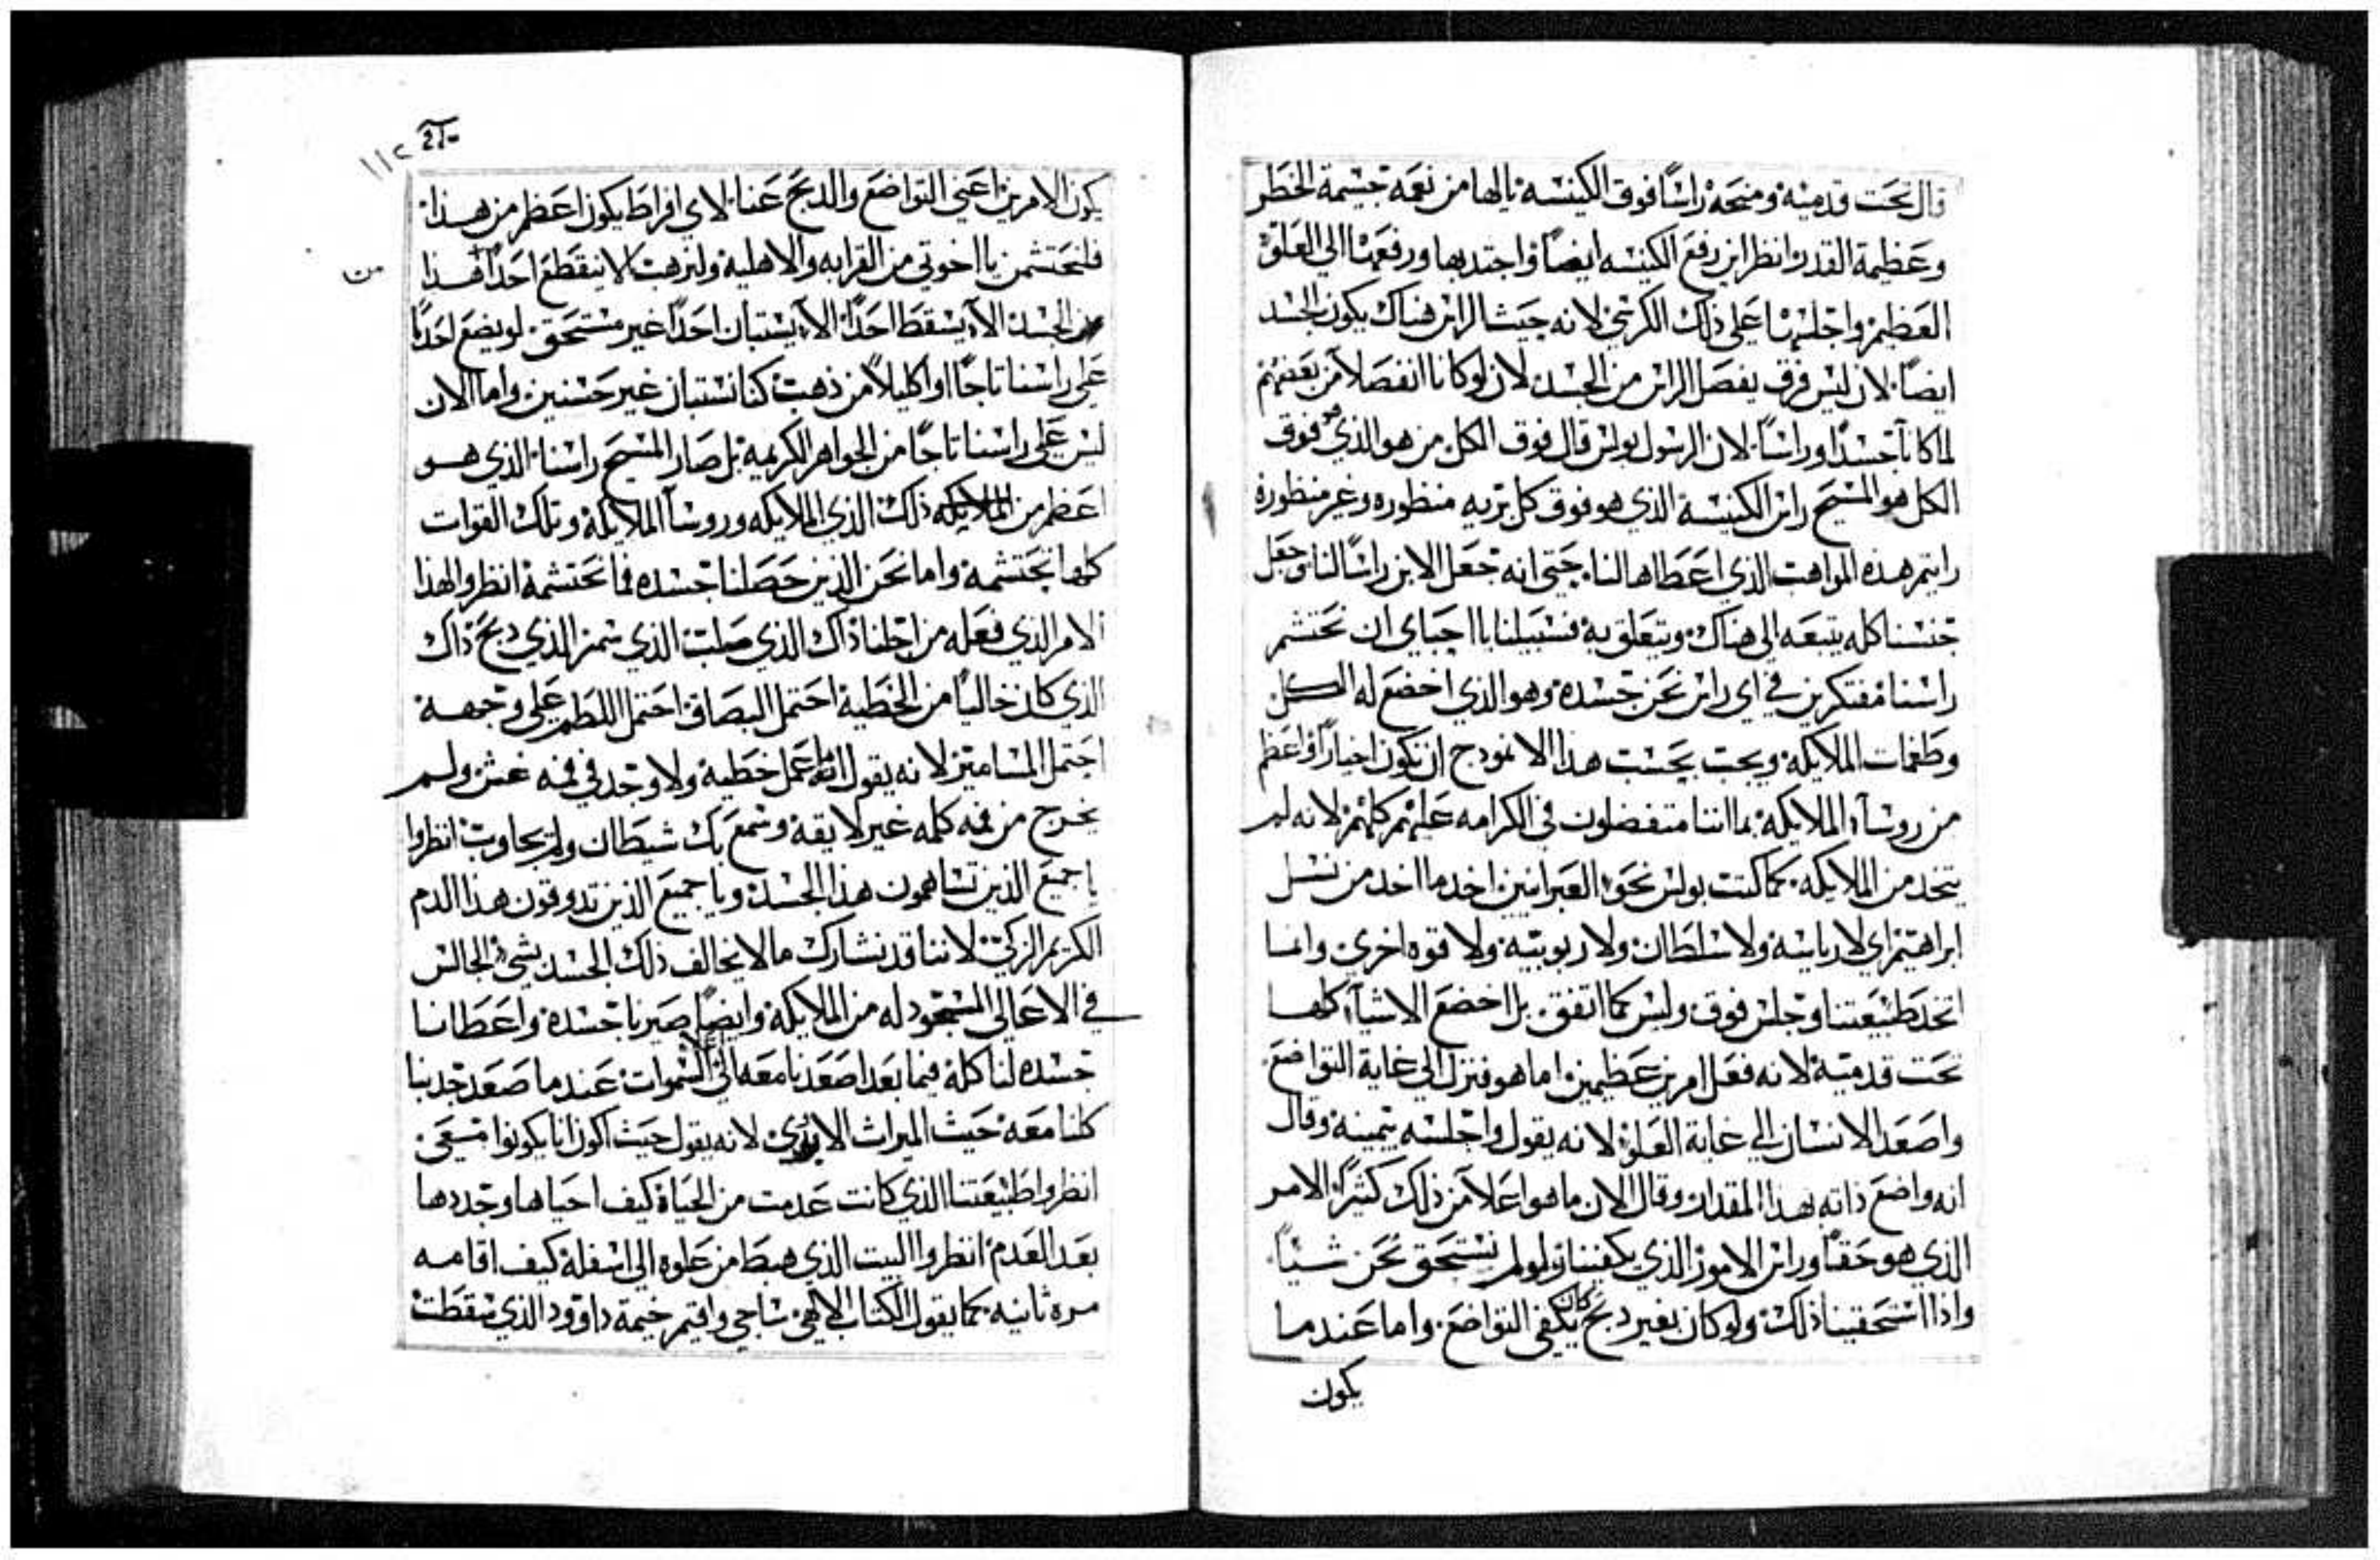 قال تحت قدميه ومنحه راسًا فوق الكنيسه يالها من نعمه جسيمة الخطر
وعظيمة القدر وانظر اين رفع الكنيسه ايضًا واجتدبها ورفعها الي العلو
العظيم واجلسها علي ذلك الكرسي لانه حيث الراس هناك يكون الجسد
ايضًا لان ليس فرق يفصل الراس من الجسد لان لو كانا انفصلا من بعضهم
لما كانا جسدًا وراسًا لان الرسول بولس قال فوق الكل من هو الذي هو فوق
الكل هو المسيح راس الكنيسة الذي هو فوق كل بريه منظوره وغير منظوره
رايتم هده المواهب الذي اعطاها لنا حتي انه جعل الابن راسًا لنا وجعل
جنسنا كله يتبعه الي هناك ويتعلق به فسبيلنا يا احباي ان نحتشم
راسنا مفتكرين في اي راس نحن جسده وهو الذي اخضع له الكل
وطغمات الملايكه ويجب بحسب هدا الانمودج ان نكون اخيارًا واعظم
من روسآء الملايكه بما اننا متفضلون في الكرامه عليهم كلهم لانه لم
يتخد من الملايكه كما كتب بولس نحو العبرانيين اخد ما اخد من نسل
ابراهيم اي لا رياسه ولا سلطان ولا ربوبيه ولا قوه اخري وانما
اتخد طبيعتنا وجلس فوق وليس كما اتفق بل اخضع الاشيآء كلها
تحت قدميه لانه فعل امرين عظيمين اما هو فنزل الي غاية التواضع
واصعد الانسان الي غاية العلو لانه يقول واجلسه بيمينه وقال
انه واضع ذاته بهدا المقدار وقال الان ما هو اعلا من ذلك كثيرًا الامر
الذي هو حقًا وراس الامور الذي يكفينا ولو لم نستحق نحن شيًا
واذا استحقينا ذلك ولو كان بغير دبح كان يكفي التواضع واما عندما
يكون
١١٢ 210
يكون الامرين اعني التواضع والدبح عنا لاي افراط يكون اعظم من هدا
فلنحتشمن يا اخوتي من القرابه والاهليه ولنرهب لا ينقطع احدًا هدا
من
الجسد الا يسقط احدًا الا يستبان احدًا غير مستحق لو يضع احدًا
علي راسنا تاجًا او اكليلاً من ذهب كنا نستبان غير حسنين واما الان
ليس علي راسنا تاجًا من الجواهر الكريمه بل صار المسيح راسنا الذي هو
اعظم من الملايكه ذلك الذي الملايكه وروسآ الملايكة وتلك القوات
كلها تحتشمه واما نحن الذين حصلنا جسده فما نحتشمه انظروا لهذا
الامر الذي فعله من اجلنا ذاك الذي صلب الذي سمر الذي دبح ذاك
الذي كان خاليًا من الخطية احتمل البصاق احتمل اللطم علي وجهه
احتمل المسامير لانه يقول انه ما عمل خطية ولا وجد في فمه غش ولم
يخرج من فمه كلمه غير لايقه وسمع بك شيطان ولم يجاوب انظروا
يا جميع الذين تساهمون هدا الجسد ويا جميع الذين تدوقون هدا الدم
الكريم الزكي لاننا قد نشارك ما لا يخالف ذلك الجسد بشي الجالس
في الاعالي المسجود له من الملايكه وايضًا صيرنا جسده واعطانا
جسده لنا كله فيما بعد اصعدنا معه الي السموات عندما صعد جدبنا
كلنا معه حيث الميراث الابدي لانه يقول حيث اكون انا يكونوا معي
انظروا طبيعتنا الذي كانت عدمت من الحياة كيف احياها وجددها
بعد العدم انظروا البيت الذي هبط من علوه الي اسفله كيف اقامه
مره ثانيه كما يقول الكتاب الالهي ساجي واقيم خيمة داوود الذي سقطت